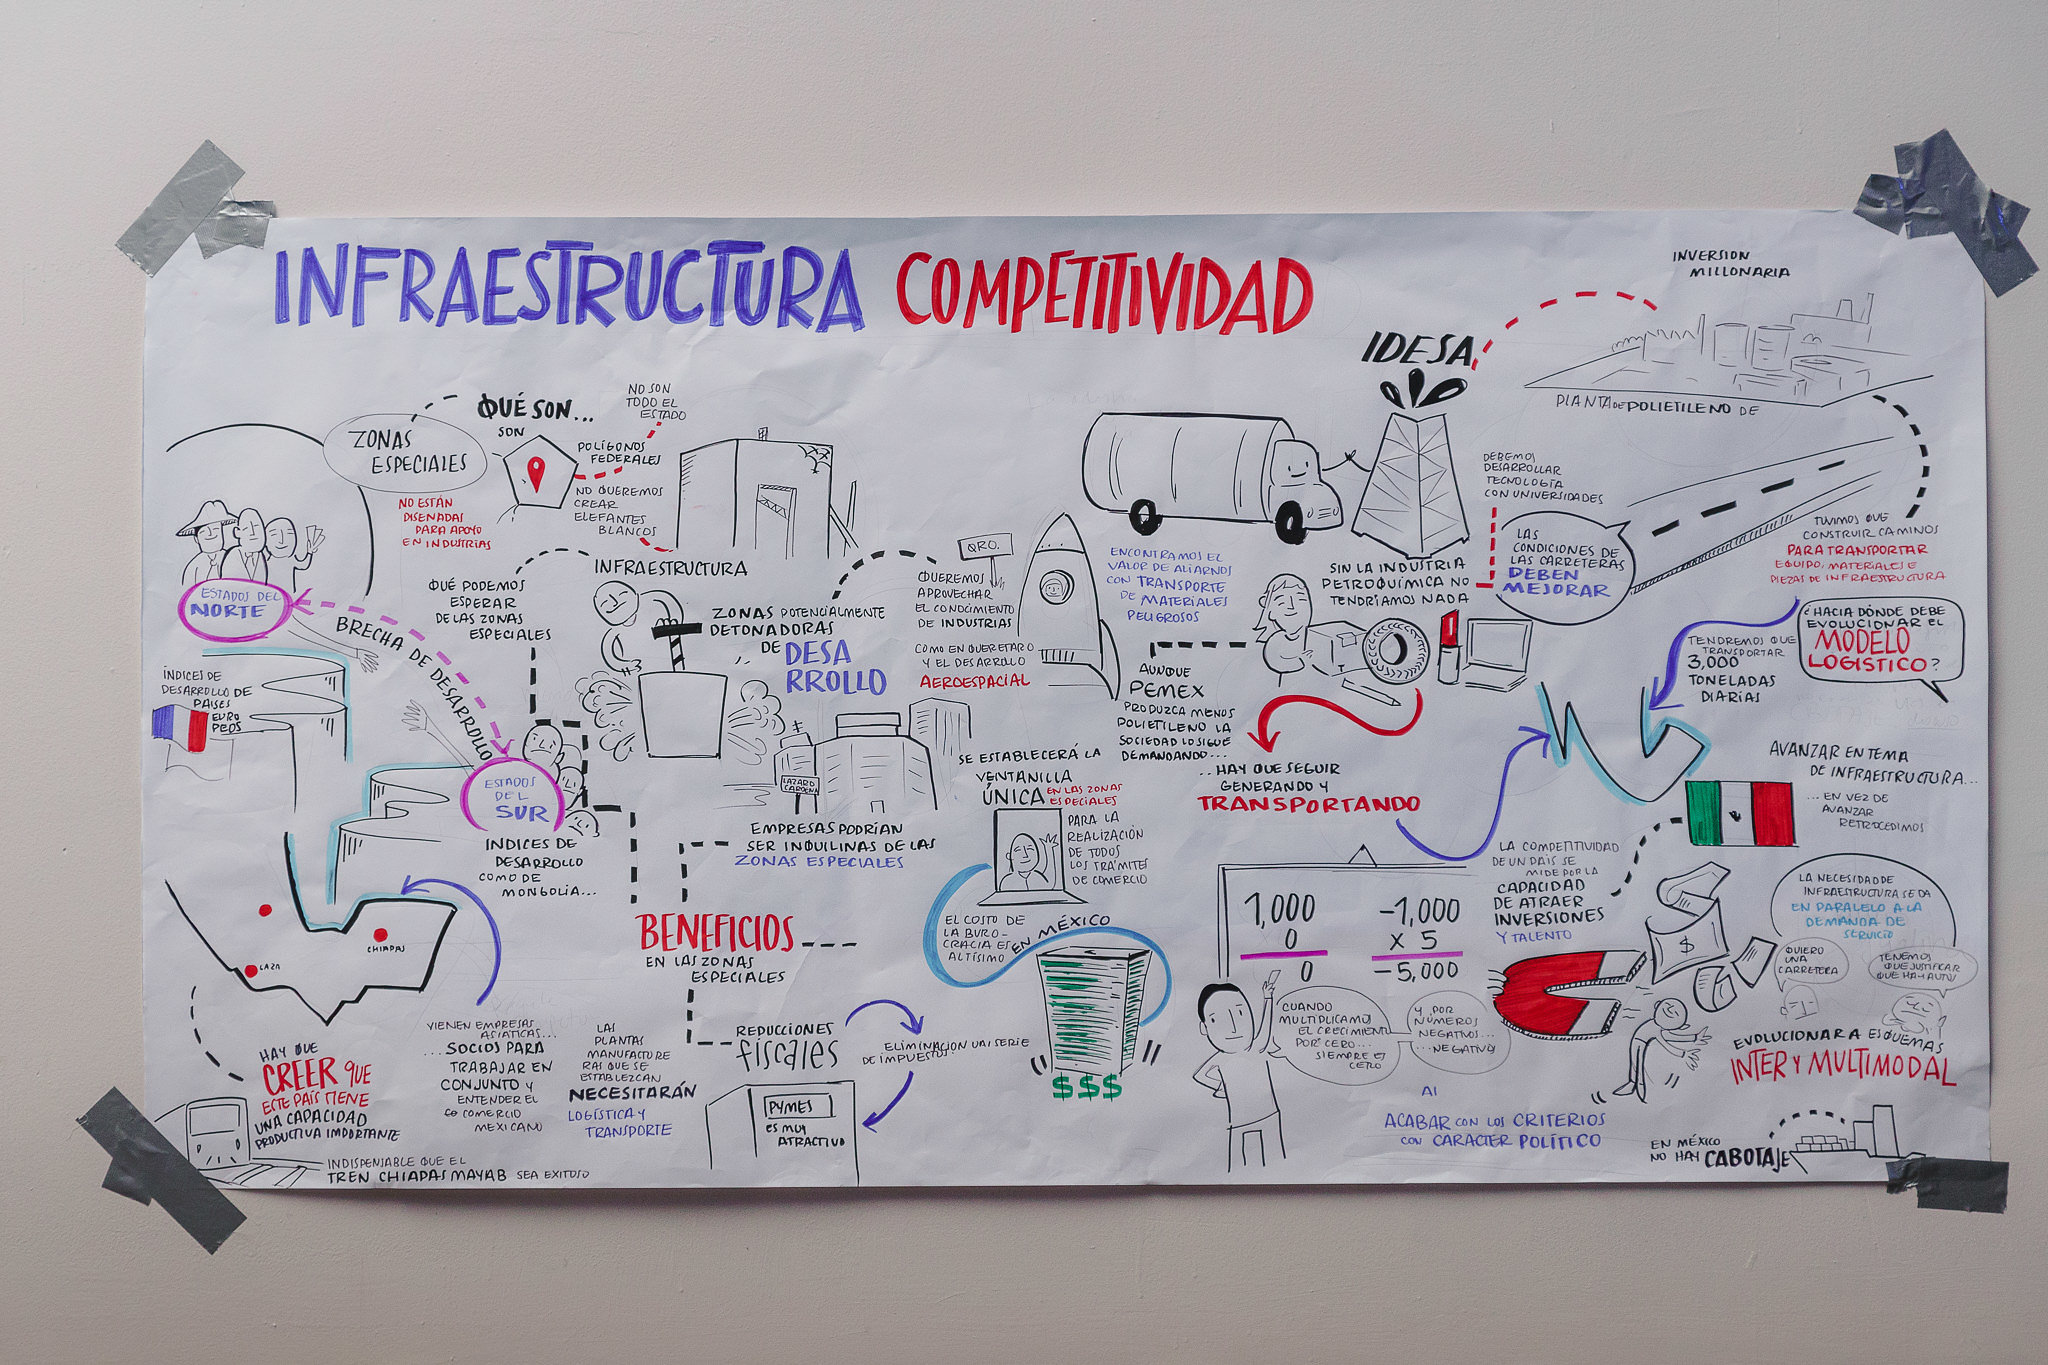 INFRAESTRUCTURA COMPETITIVIDAD
ZONAS
ESPECIALES
QUÉ SON...
SON
NO SON
TODO EL
ESTADO
POLÍGONOS
FEDERALES
NO QUEREMOS
CREAR
ELEFANTES
BLANCOS
NO ESTÁN
DISEÑADAS
PARA APOYO
EN INDUSTRIAS
ESTADOS DEL
NORTE
BRECHA DE DESARROLLO
ÍNDICES DE
DESARROLLO DE
PAISES
EURO
PEOS
ESTADOS
DEL
SUR
INDICES DE
DESARROLLO
COMO DE
MONGOLIA...
QUÉ PODEMOS
ESPERAR
DE LAS ZONAS
ESPECIALES
INFRAESTRUCTURA
ZONAS POTENCIALMENTE
DETONADORAS
DE DESA
RROLLO
QRO.
QUEREMOS
APROVECHAR
EL CONOCIMIENTO
DE INDUSTRIAS
COMO EN QUERETARO
Y EL DESARROLLO
AEROESPACIAL
LAZARO
CARDENA
EMPRESAS PODRÍAN
SER INQUILINAS DE LAS
ZONAS ESPECIALES
CHIAPAS
HAY QUE
CREER QUE
ESTE PAÍS TIENE
UNA CAPACIDAD
PRODUCTIVA IMPORTANTE
INDISPENSABLE QUE EL
TREN CHIAPAS MAYAB SEA EXITOSO
VIENEN EMPRESAS
ASIÁTICAS...
...SOCIOS PARA
TRABAJAR EN
CONJUNTO Y
ENTENDER EL
COMERCIO
MEXICANO
LAS
PLANTAS
MANUFACTURE
RAS QUE SE
ESTABLEZCAN
NECESITARÁN
LOGÍSTICA Y
TRANSPORTE
BENEFICIOS
EN LAS ZONAS
ESPECIALES
REDUCCIONES
FISCALES
ELIMINACION UNA SERIE
DE IMPUESTOS
PYMES
ES MUY
ATRACTIVO
SE ESTABLECERÁ LA
VENTANILLA
ÚNICA EN LAS ZONAS
ESPECIALES
PARA LA
REALIZACIÓN
DE TODOS
LOS TRÁMITES
DE COMERCIO
EL COSTO DE
LA BURO-
CRACIA ES
ALTÍSIMO
EN MÉXICO
$$$
IDESA
INVERSION
MILLONARIA
PLANTA DE POLIETILENO DE
ENCONTRAMOS EL
VALOR DE ALIARNOS
CON TRANSPORTE
DE MATERIALES
PELIGROSOS
SIN LA INDUSTRIA
PETROQUÍMICA NO
TENDRÍAMOS NADA
DEBEMOS
DESARROLLAR
TECNOLOGÍA
CON UNIVERSIDADES
LAS
CONDICIONES DE
LAS CARRETERAS
DEBEN
MEJORAR
TUVIMOS QUE
CONSTRUIR CAMINOS
PARA TRANSPORTAR
EQUIPO, MATERIALES E
PIEZAS DE INFRAESTRUCTURA
¿HACIA DÓNDE DEBE
EVOLUCIONAR EL
MODELO
LOGÍSTICO?
TENDREMOS QUE
TRANSPORTAR
3,000
TONELADAS
DIARIAS
AUNQUE
PEMEX
PRODUZCA MENOS
POLIETILENO LA
SOCIEDAD LO SIGUE
DEMANDANDO...
...HAY QUE SEGUIR
GENERANDO Y
TRANSPORTANDO
AVANZAR EN TEMA
DE INFRAESTRUCTURA...
...EN VEZ DE
AVANZAR
RETROCEDIMOS
LA COMPETITIVIDAD
DE UN PAÍS SE
MIDE POR LA
CAPACIDAD
DE ATRAER
INVERSIONES
Y TALENTO
1,000
0
0
-1,000
x 5
-5,000
CUANDO
MULTIPLICAMOS
EL CRECIMIENTO
POR CERO...
SIEMPRE ES
CERO
Y POR
NÚMEROS
NEGATIVOS...
...NEGATIVO
Al
ACABAR CON LOS CRITERIOS
CON CARACTER POLÍTICO
$
LA NECESIDAD DE
INFRAESTRUCTURA SE DA
EN PARALELO A LA
DEMANDA DE
SERVICIO
QUIERO
UNA
CARRETERA
TENEMOS
QUE JUSTIFICAR
QUE HAY AUTOS
EVOLUCIONAR A ESQUEMAS
INTER Y MULTIMODAL
EN MÉXICO
NO HAY CABOTAJE